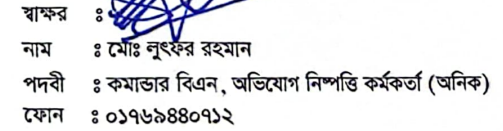 স্বাক্ষর :
নাম : মোঃ লুৎফর রহমান
পদবী : কমান্ডার বিএন, অভিযোগ নিষ্পত্তি কর্মকর্তা (অনিক)
ফোন : ০১৭৬৯৪৪০৭১২